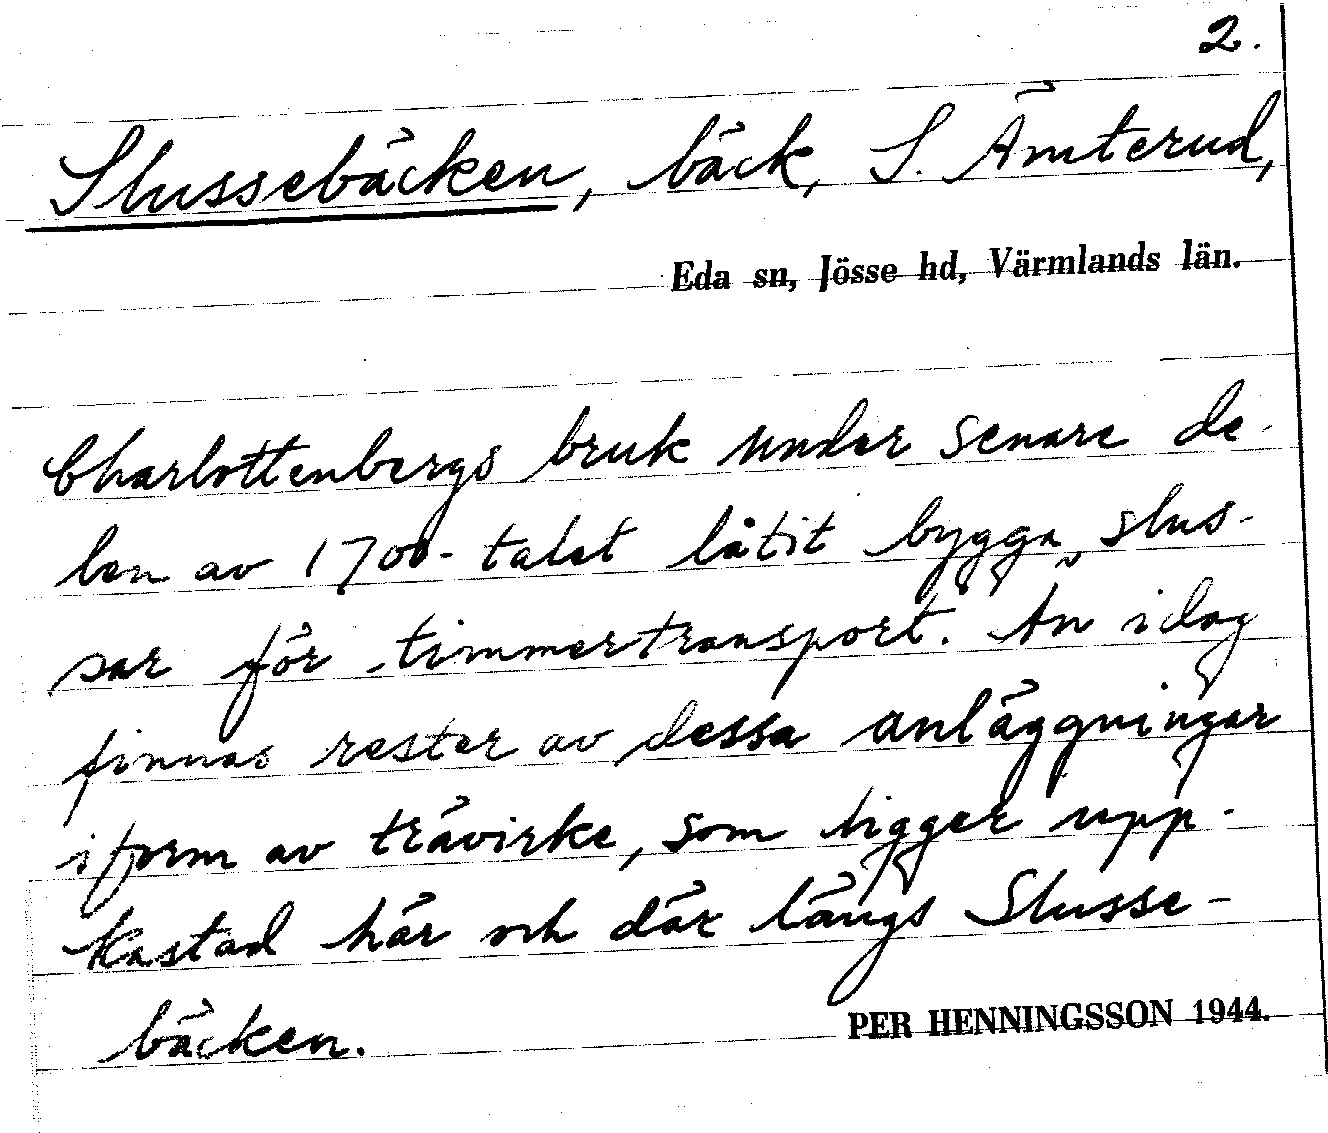 2.
Slussebäcken, bäck, S. Ämterud,
Eda sn, Jösse hd, Värmlands län.
Charlottenbergs bruk under senare de-
len av 1700-talet låtit bygga slus-
sar för timmertransport. Än idag
finnas rester av dessa anläggningar
i form av trävirke, som ligger upp-
kastad här och där längs Slusse-
bäcken.
PER HENNINGSSON 1944.